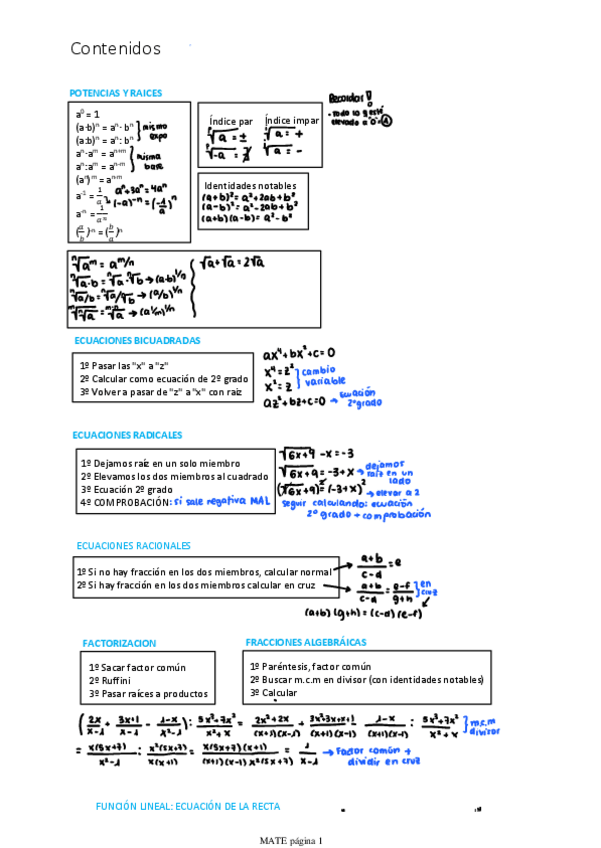 Contenidos
POTENCIAS Y RAICES
a⁰ = 1
(a·b)ⁿ = aⁿ· bⁿ
(a:b)ⁿ = aⁿ: bⁿ
mismo
expo
aⁿ·aᵐ = aⁿ⁺ᵐ
aⁿ:aᵐ = aⁿ⁻ᵐ
misma
base
(aⁿ)ᵐ = aⁿ·ᵐ
a⁻¹ = 1/a
aⁿ+3aⁿ = 4aⁿ
(-a)⁻ⁿ = (-1/a)ⁿ
a⁻ⁿ = 1/aⁿ
(a/b)⁻ⁿ = (b/a)ⁿ
Índice par Índice impar
√a = ± √a = +
√-a = ∄ √a = -
Recordar!
- todo lo q esté
elevado a 0 = 1
Identidades notables
(a+b)² = a²+2ab+b²
(a-b)² = a²-2ab+b²
(a+b)(a-b) = a²-b²
ⁿ√aᵐ = a^m/n
ⁿ√a·b = ⁿ√a·ⁿ√b → (a·b)^1/n
ⁿ√a/b = ⁿ√a/ⁿ√b → (a/b)^1/n
√a+√a = 2√a
ECUACIONES BICUADRADAS
1º Pasar las "x" a "z"
2º Calcular como ecuación de 2º grado
3º Volver a pasar de "z" a "x" con raíz
ax⁴+bx²+c=0
x⁴=z²
x²=z
cambio
variable
az²+bz+c=0 → ecuación
2ºgrado
ECUACIONES RADICALES
1º Dejamos raíz en un solo miembro
2º Elevamos los dos miembros al cuadrado
3º Ecuación 2º grado
4º COMPROBACIÓN: si sale negativa MAL
√6x+9 -x=-3
√6x+9 = -3+x → dejamos
raíz en un
lado
(√6x+9)² = (-3+x)² → elevar a 2
seguir calculando: ecuación
2º grado + comprobación
ECUACIONES RACIONALES
1º Si no hay fracción en los dos miembros, calcular normal
2º Si hay fracción en los dos miembros calcular en cruz
(a+b)/(c-d) = e
(a+b)/(c-d) = (e-f)/(g+h) en
cruz
(a+b)(g+h) = (c-d)(e-f)
FACTORIZACION
1º Sacar factor común
2º Ruffini
3º Pasar raíces a productos
FRACCIONES ALGEBRÁICAS
1º Paréntesis, factor común
2º Buscar m.c.m en divisor (con identidades notables)
3º Calcular
(2x/(x-1) + (3x+1)/(x-1) - (1-x)/(x²-1)) : (5x³+7x²)/(x²+x) = (2x²+2x)/((x+1)(x-1)) + (3x²+3x+x+1)/((x+1)(x-1)) - (1-x)/((x+1)(x-1)) : (5x³+7x²)/(x²+x) m.c.m
divisor
= x(5x+7)/(x²-1) : x²(5x+7)/(x(x+1)) = x(5x+7)(x+1)/((x+1)(x-1)x²(5x+7)) = 1/(x-1) → factor común +
dividir en cruz
FUNCIÓN LINEAL: ECUACIÓN DE LA RECTA
MATE página 1